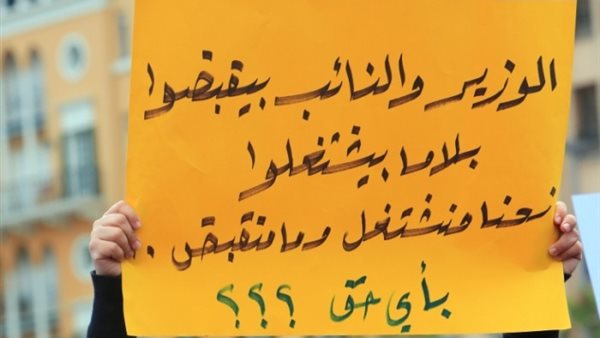 الوزير والنائب بيقبضوا
بلا ما بيشتغلوا
نحنا منشتغل وما منقبض .
بأي حق ؟؟؟